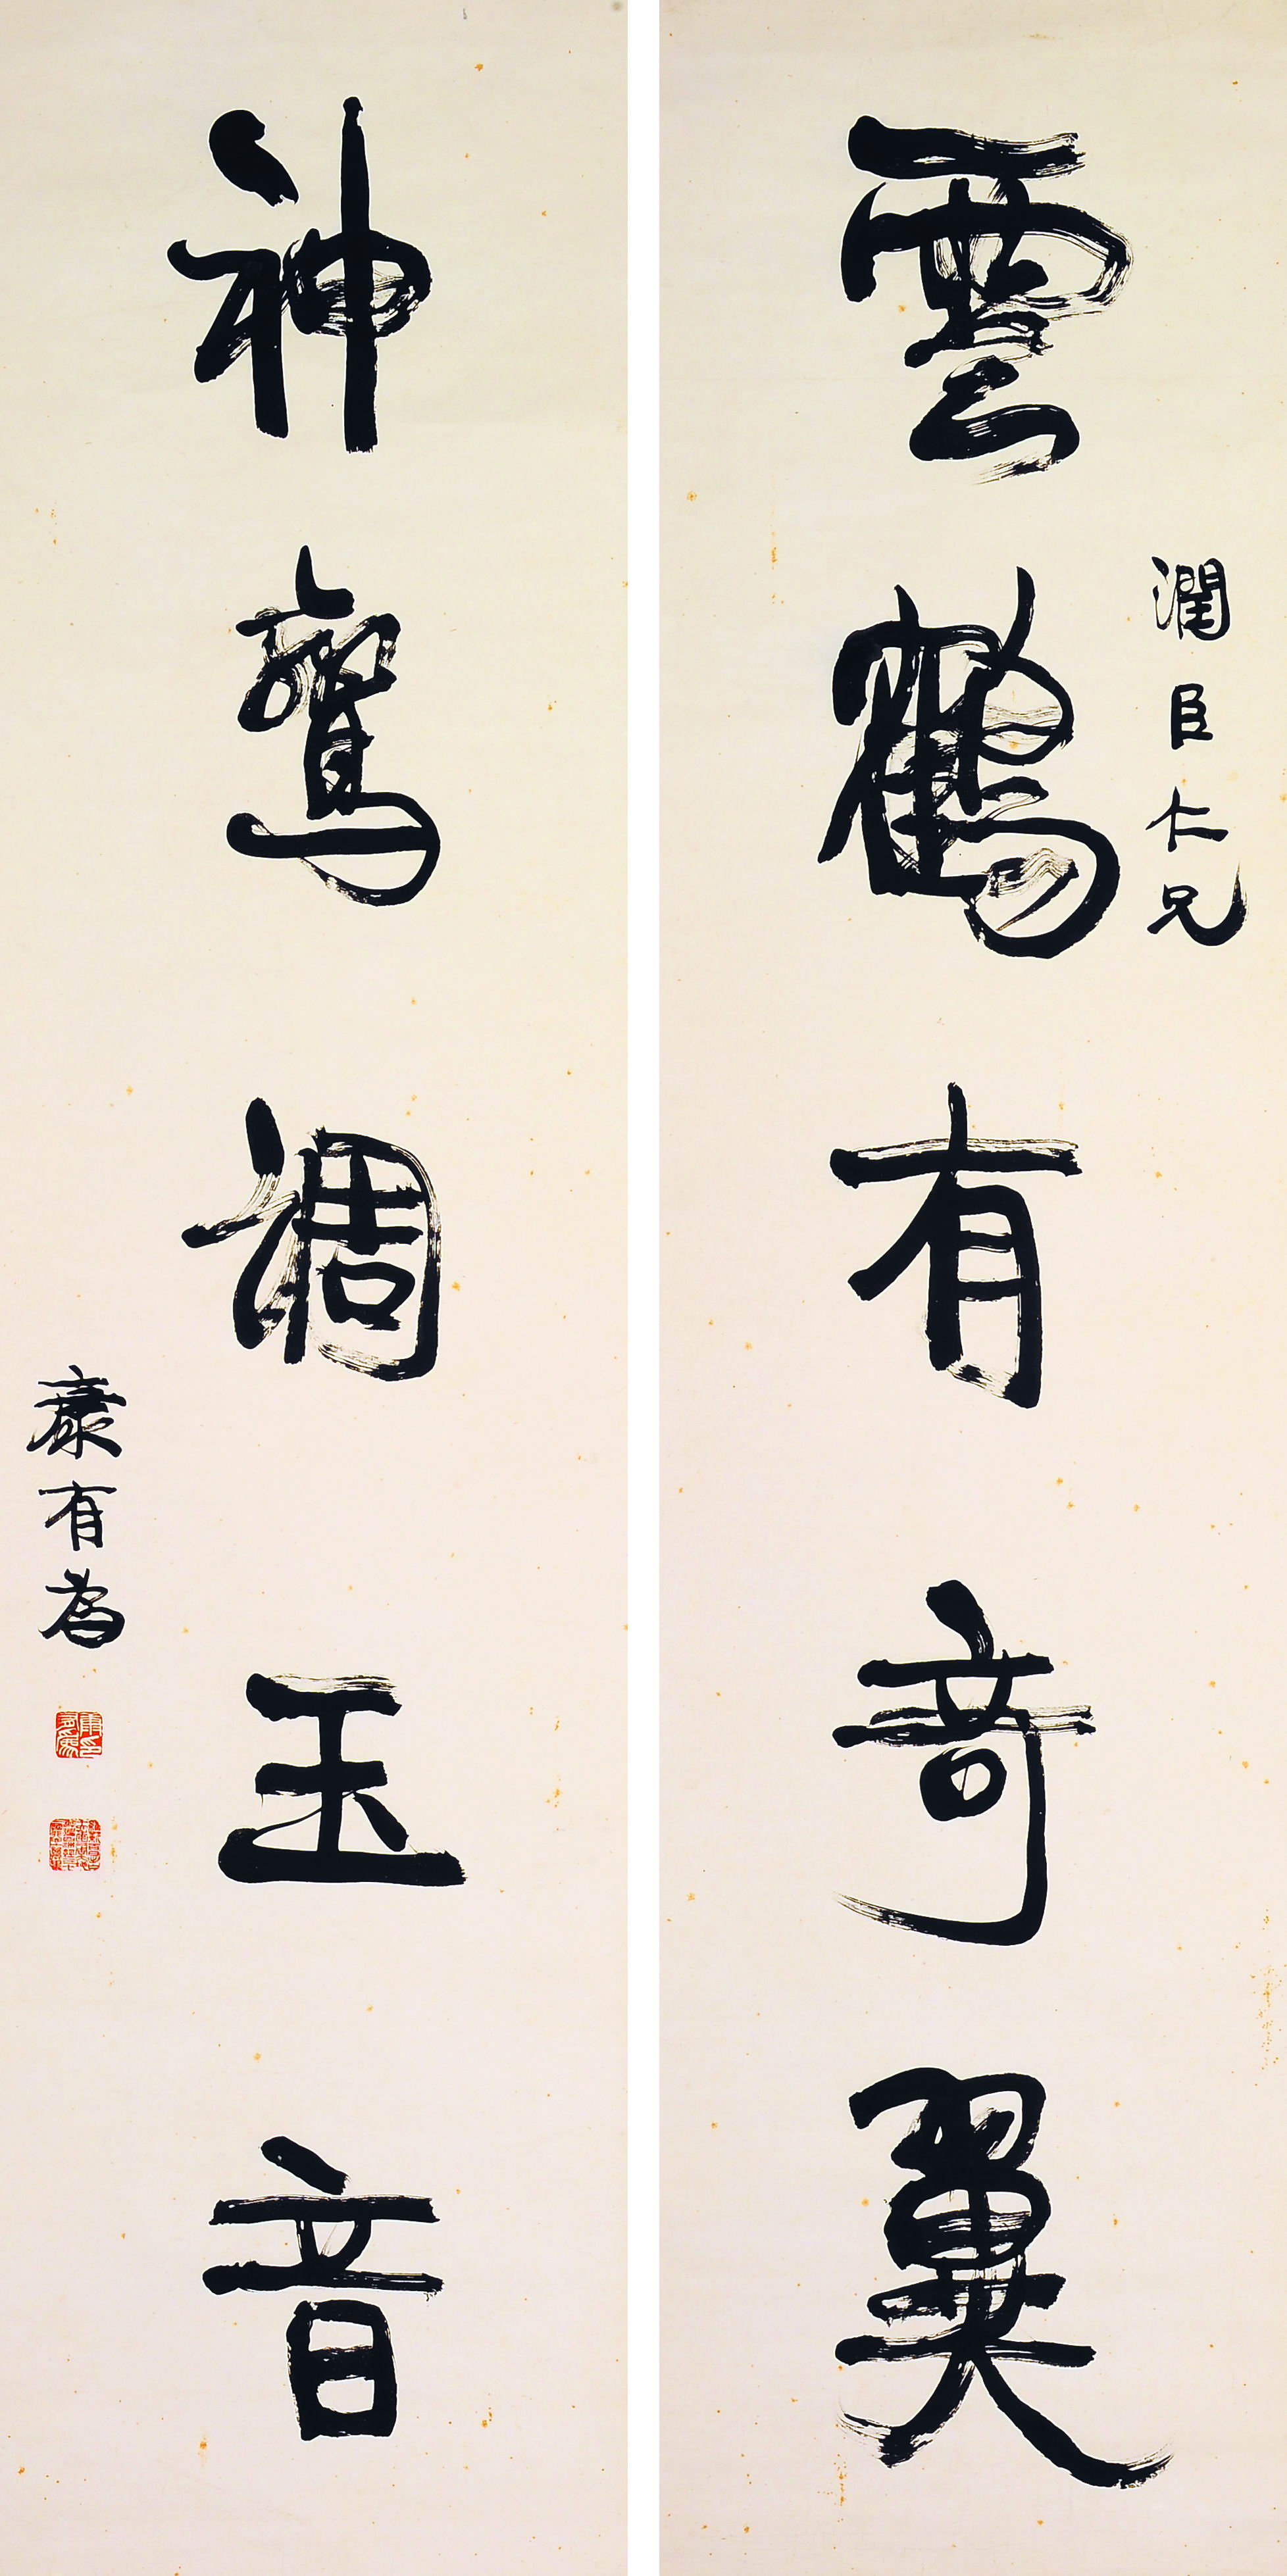 潤臣仁兄
雲鶴有奇翼
神鸞調玉音
康有為